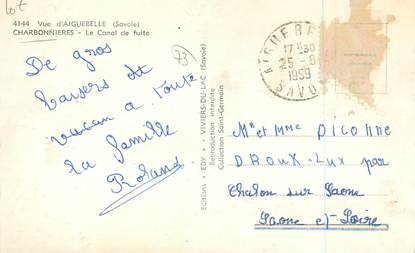 Lot
4144 Vue d'AIGUEBELLE (Savoie)
CHARBONNIERES - Le Canal de fuite
73
De gros
baisers de
vacan a toute
la famille
Roland
Editions « EDY » VIVIERS-DU-LAC (Savoie)
Reproduction interdite
Collection Saint-Germain
17 H 30
25 - 8
1959
SAVOIE
Mr et Mme PICONNE
DROUX-LUX par
Chalon sur Saone
Saone et-Loire